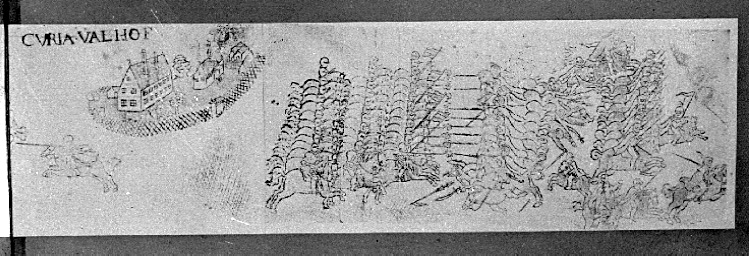 CVRIA·VALHOF